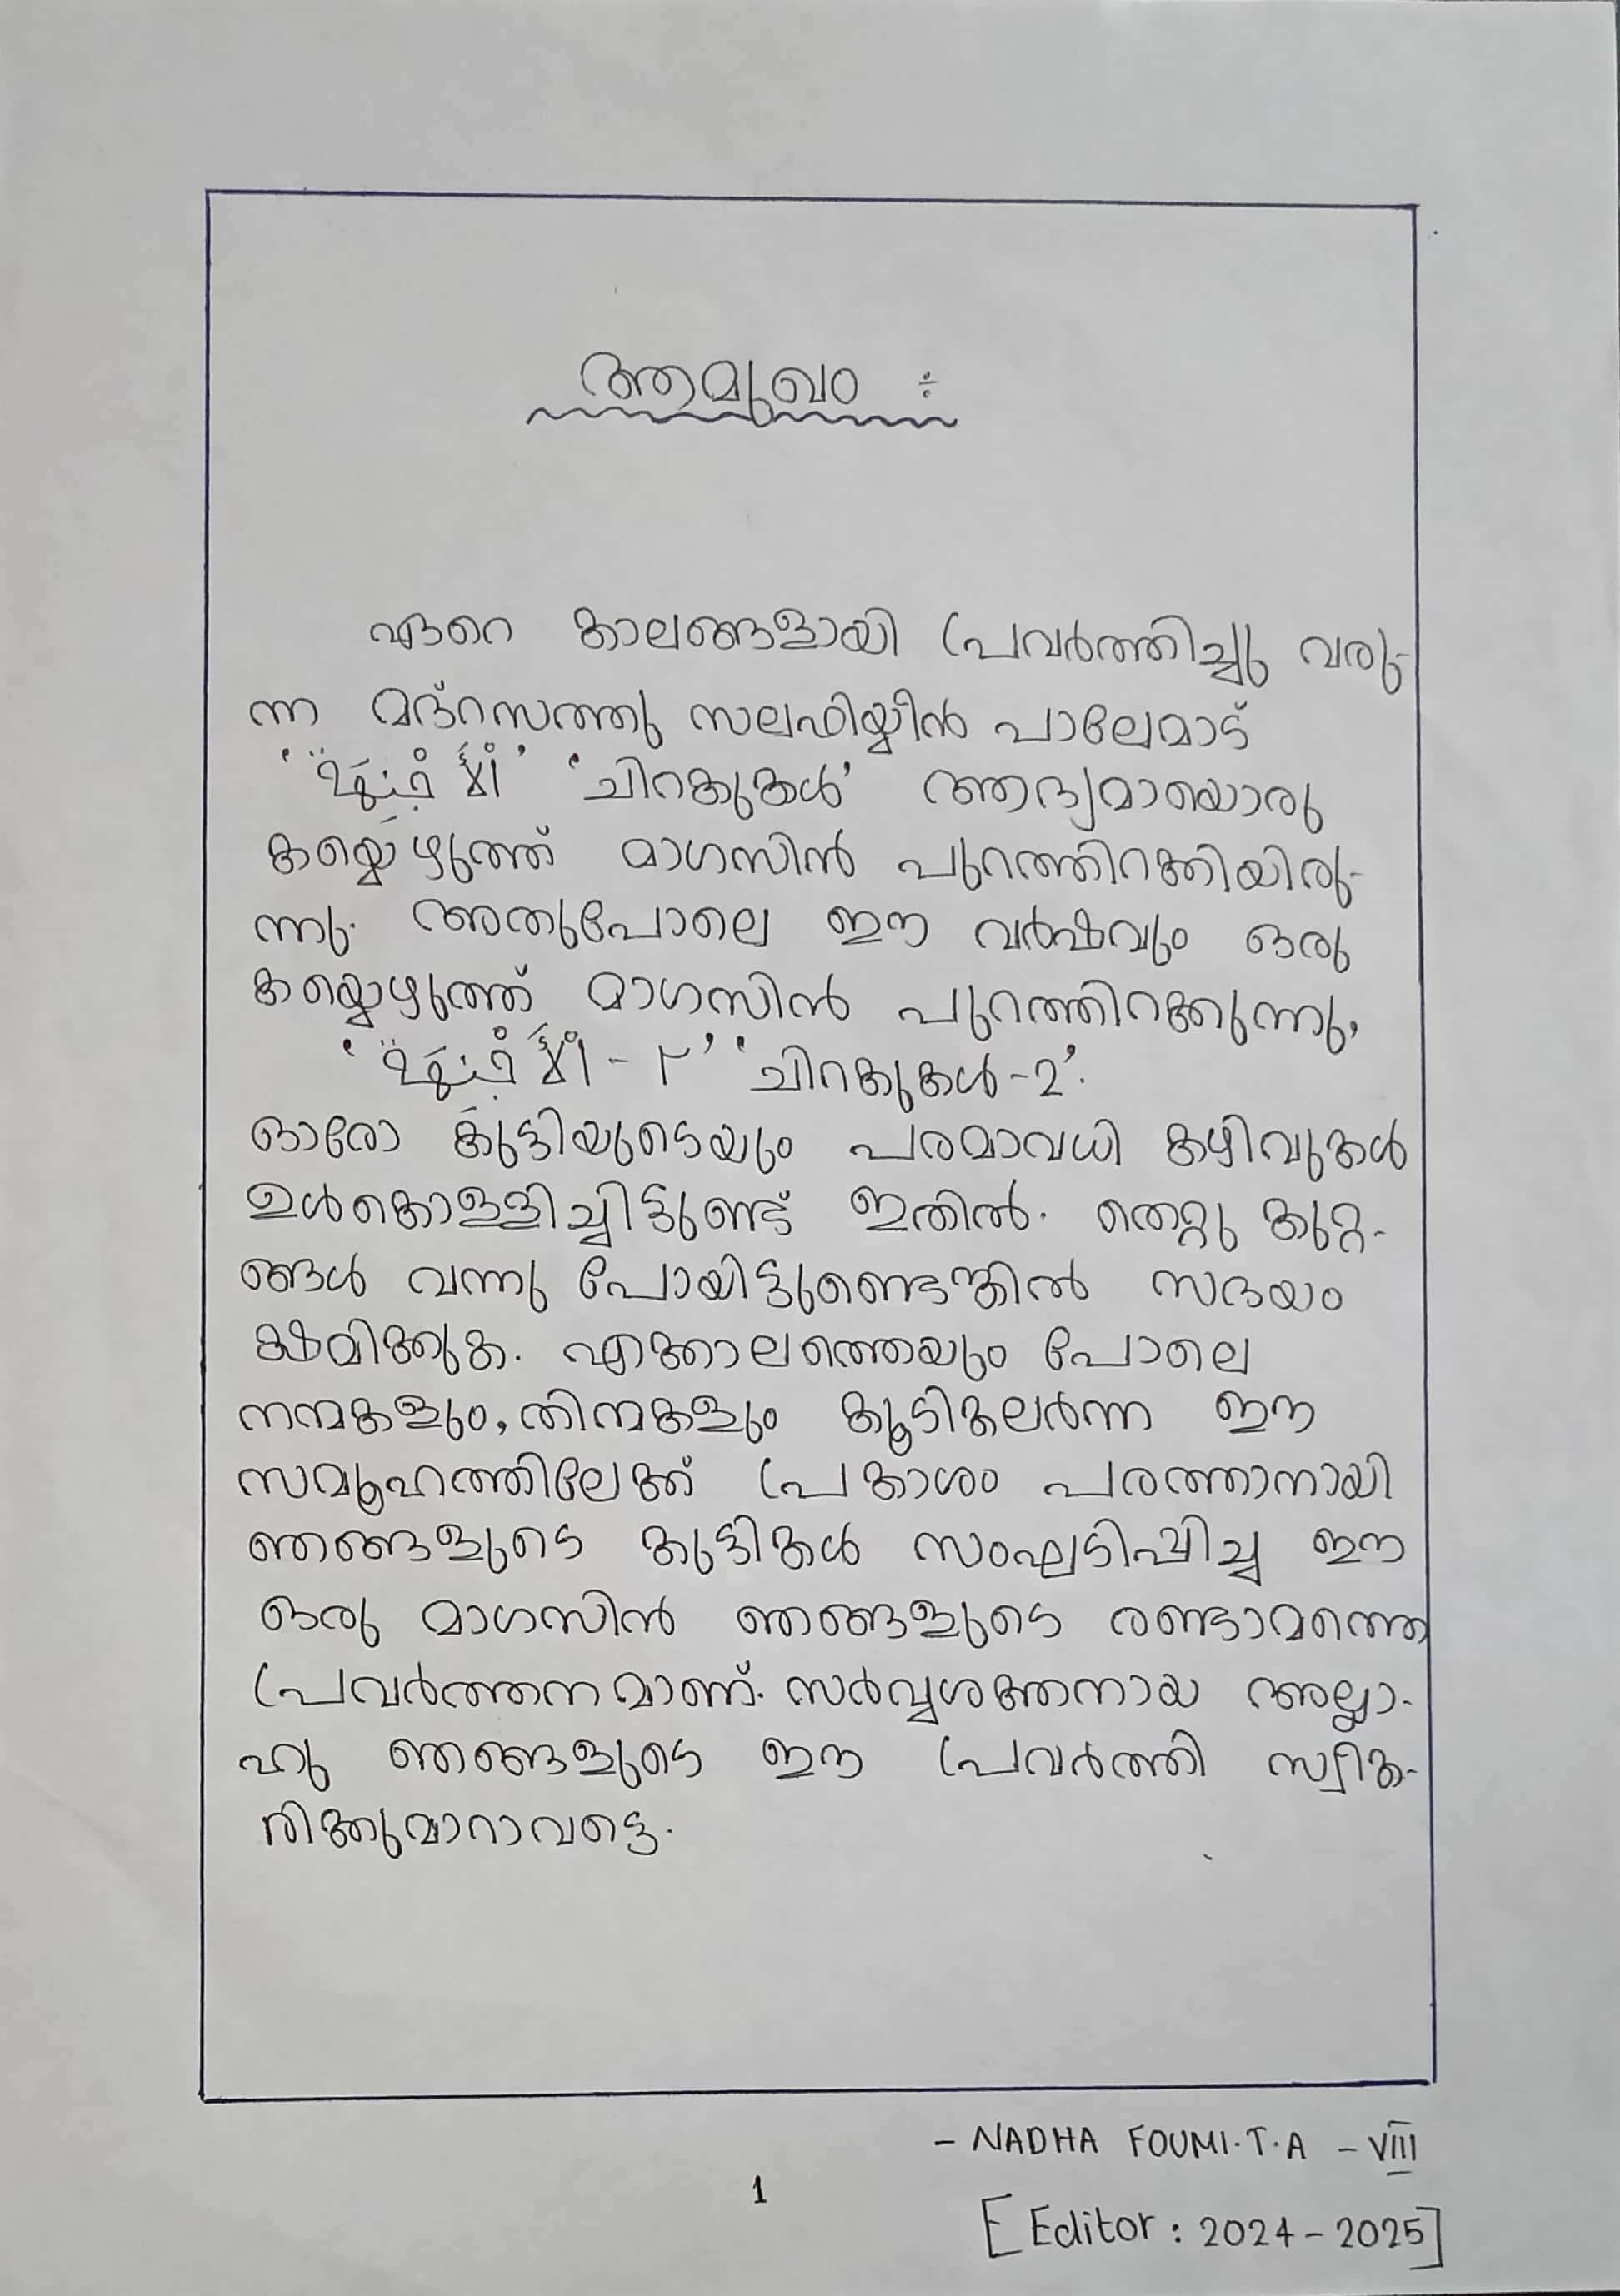 ആമുഖം ÷
ഏറെ കാലങ്ങളായി പ്രവർത്തിച്ചു വരു-
ന്ന മദ്റസത്തു സലഫിയ്യീൻ പാലേമാട്
'الأجنحة' 'ചിറകുകൾ' ആദ്യമായൊരു
കയ്യെഴുത്ത് മാഗസിൻ പുറത്തിറക്കിയിരു-
ന്നു. അതുപോലെ ഈ വർഷവും ഒരു
കയ്യെഴുത്ത് മാഗസിൻ പുറത്തിറക്കുന്നു,
'الأجنحة - ٢' 'ചിറകുകൾ-2'.
ഓരോ കുട്ടിയുടെയും പരമാവധി കഴിവുകൾ
ഉൾകൊള്ളിച്ചിട്ടുണ്ട് ഇതിൽ. തെറ്റു കുറ്റ-
ങ്ങൾ വന്നു പോയിട്ടുണ്ടെങ്കിൽ സദയം
ക്ഷമിക്കുക. എക്കാലത്തെയും പോലെ
നന്മകളും, തിന്മകളും കൂടികലർന്ന ഈ
സമൂഹത്തിലേക്ക് പ്രകാശം പരത്താനായി
ഞങ്ങളുടെ കുട്ടികൾ സംഘടിപ്പിച്ച ഈ
ഒരു മാഗസിൻ ഞങ്ങളുടെ രണ്ടാമത്തെ
പ്രവർത്തനമാണ്. സർവ്വശക്തനായ അല്ലാ-
ഹു ഞങ്ങളുടെ ഈ പ്രവർത്തി സ്വീക-
രിക്കുമാറാവട്ടെ.
- NADHA FOUMI.T.A - VIII
1
[Editor : 2024-2025]